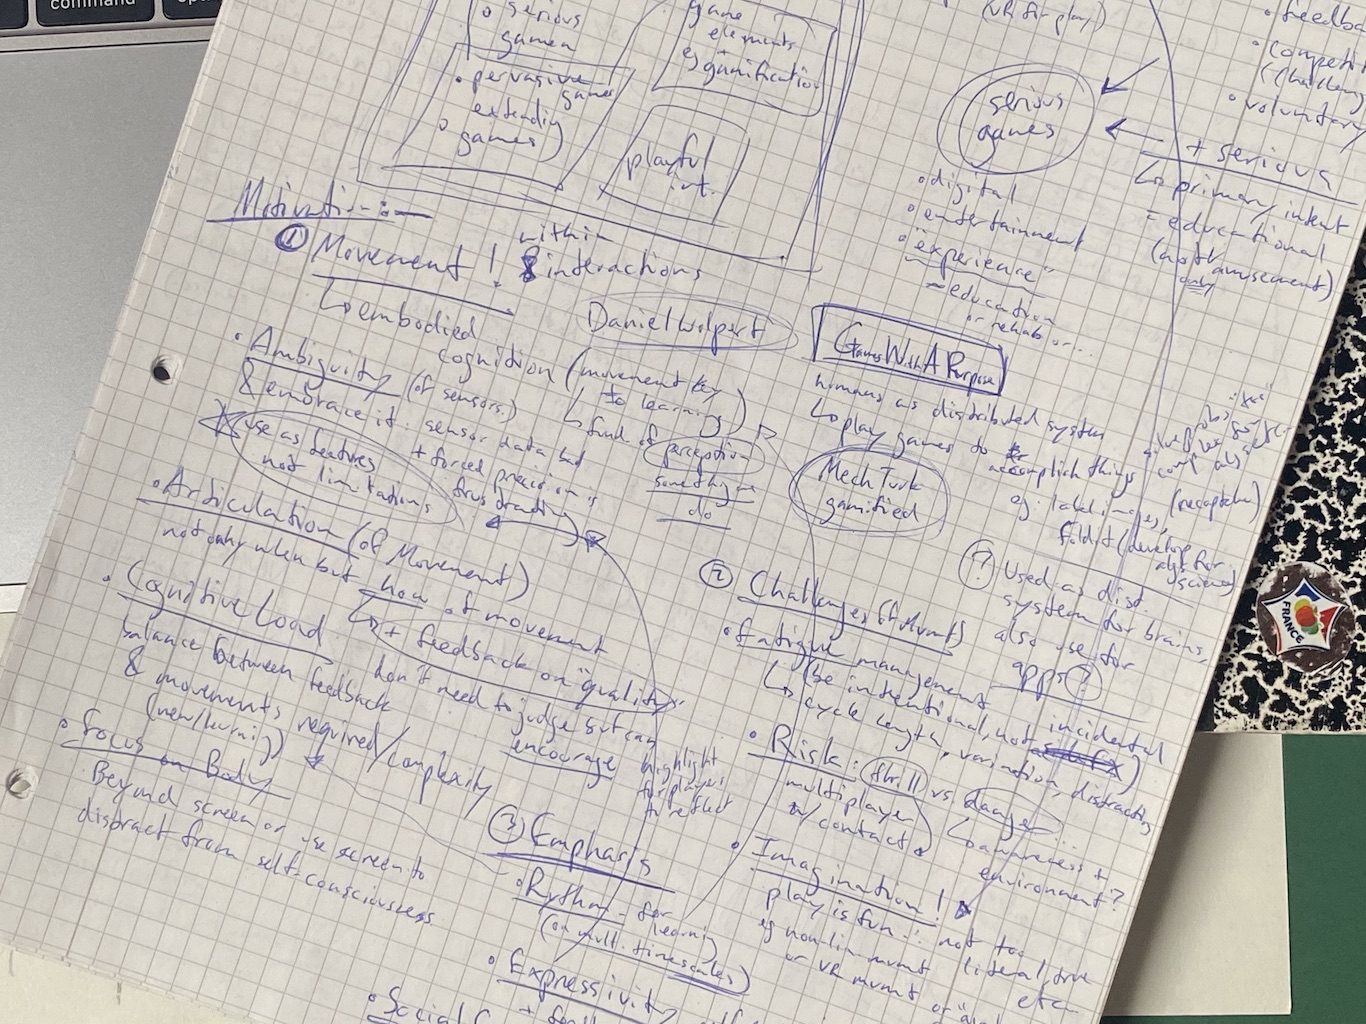 command
serious
games
pervasive
games
extending
games
game
elements
eg gamification
playful
int.
(VR for play)
serious
games
feedba
competiti
voluntary
+ serious
↳ primary intent
= educational
(not amusement)
only
digital
entertainment
"experience"
~ education
or rehab or...
Motivation:
① Movement! within
interactions
↳ embodied
cognition (movement key
to learning)
↳ find of perception
something we
do
Daniel Wolpert
Ambiguity (of sensors)
& embrace it: sensor data bad
+ forced precision is
frustrating
use as features
not limitations
Articulation (of Movement)
not only when but how of movement
↳ + feedback on "quality"
don't need to judge but can
encourage
highlight
for players
to reflect
Cognitive Load
balance between feedback
& movements required/complexity
(new/learning)
Focus on Body
Beyond screen or use screen to
distract from self-consciousness
Games With A Purpose
humans as distributed system
↳ play games to accomplish things
eg. label images, (recaptcha)
foldit (develop
algs for
science)
Mech Turk
gamified
solve probs "too"
complex for
algs
? Used as dist.
system for brains,
also use for
apps?
② Challenges (of Mvmt)
Fatigue management
(be intentional, not incidental)
↳ cycle length, variation, distracting
Risk: thrill vs danger
multiplayer
w/ contact
↳ awareness +
environment?
Imagination!
play is fun ∴ not too literal, true
eg non-lin mvmt etc
or VR mvmt or
③ Emphasis
Rythm - for
learning
(on mult. timescales)
Expressivity
Social
FRANCE